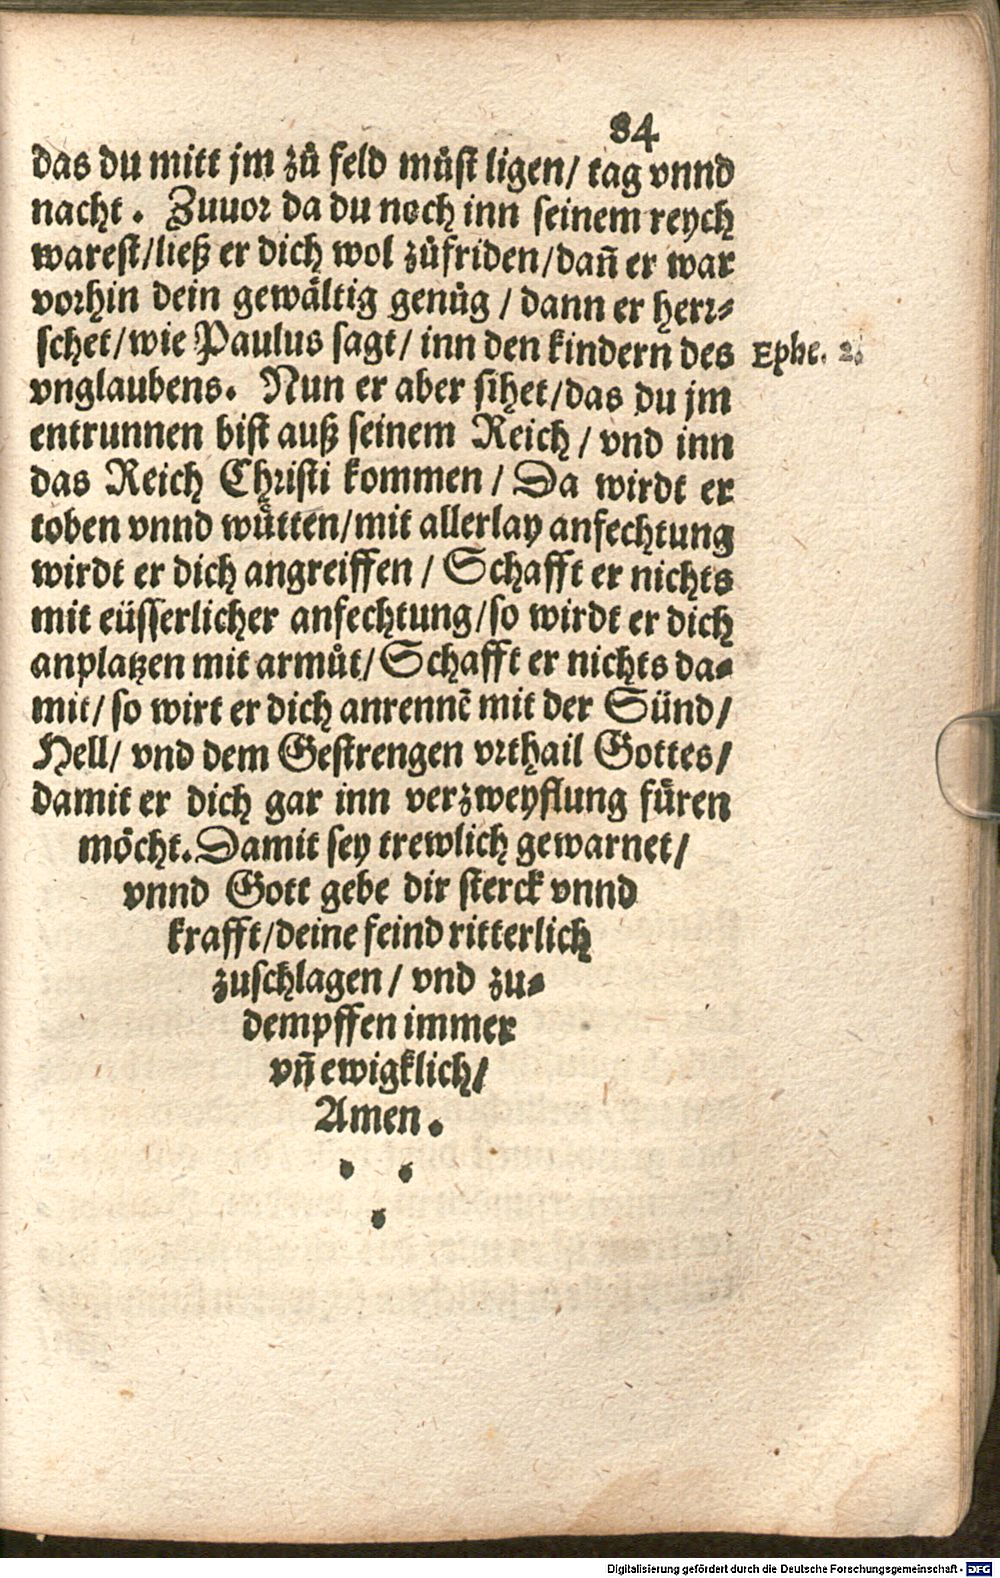 84
das du mitt jm zů feld můſt ligen/ tag vnnd
nacht. Zuuor da du noch inn ſeinem reych
wareſt/ließ er dich wol zůfriden/dañ er war
vorhin dein gewåltig genůg / dann er herr-
ſchet/wie Paulus ſagt/ inn den kindern des
Ephe. 2.
vnglaubens. Nun er aber ſihet/das du jm
entrunnen biſt auß ſeinem Reich/ vnd inn
das Reich Chriſti kommen / Da wirdt er
toben vnnd wütten/mit allerlay anfechtung
wirdt er dich angreiffen / Schafft er nichts
mit eüſſerlicher anfechtung/ſo wirdt er dich
anplatzen mit armůt/ Schafft er nichts da-
mit/ ſo wirt er dich anrennē mit der Sünd/
Hell/ vnd dem Geſtrengen vrthail Gottes/
damit er dich gar inn verzweyflung füren
möcht. Damit ſey trewlich gewarnet/
vnnd Gott gebe dir ſterck vnnd
krafft/deine feind ritterlich
zuſchlagen/ vnd zu-
dempffen immer
vñ ewigklich/
Amen.
Digitalisierung gefördert durch die Deutsche Forschungsgemeinschaft - DFG